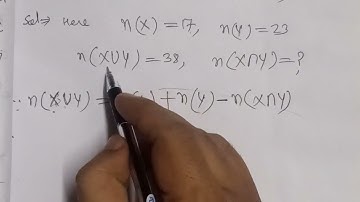 Sol⇒ Here n(X) = 17, n(Y) = 23
n(X∪Y) = 38, n(X∩Y) = ?
∵ n(X∪Y) = ) + n(Y) − n(X∩Y)